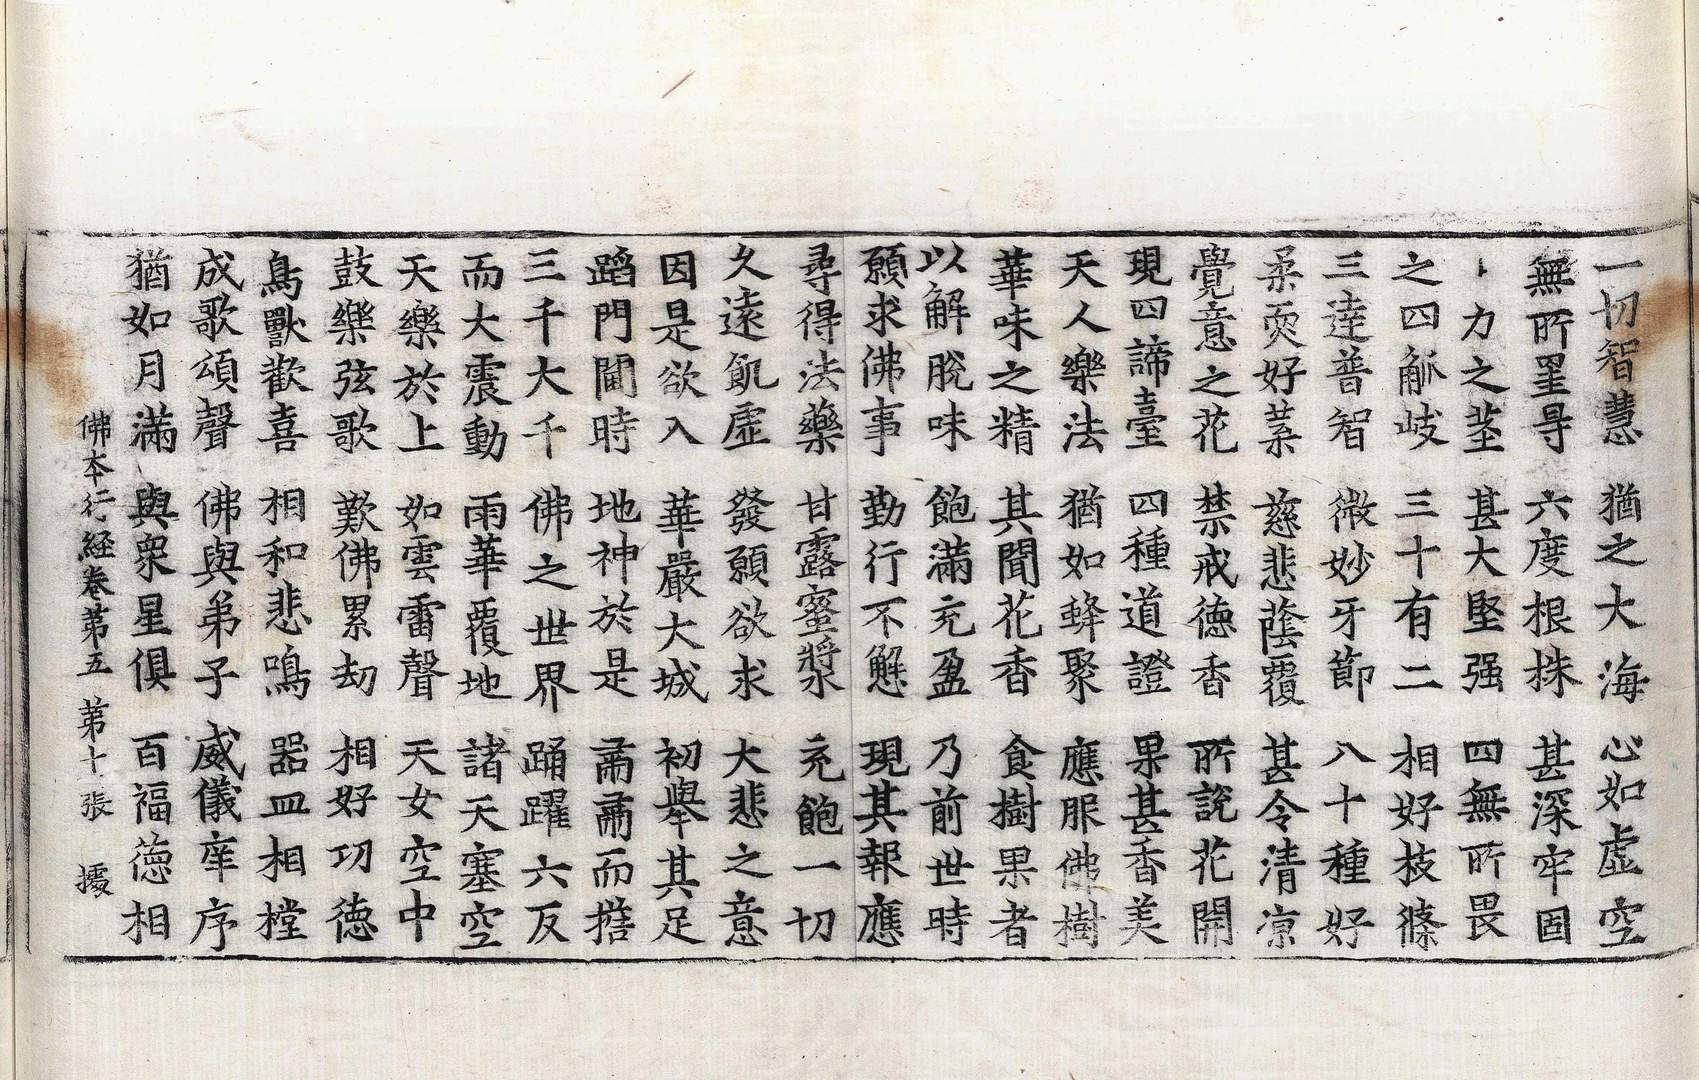 一切智慧 猶之大海 心如虛空
無所罣㝵 六度根株 甚深牢固
十力之莖 甚大堅强 四無所畏
之四觚岐 三十有二 相好枝條
三達普智 微妙牙節 八十種好
柔耎好葉 慈悲蔭覆 甚令清涼
覺意之花 禁戒德香 所說花開
現四諦臺 四種道證 果甚香美
天人樂法 猶如蜂聚 應服佛樹
華味之精 其聞花香 食樹果者
以解脫味 飽滿充盈 乃前世時
願求佛事 勤行不懈 現其報應
尋得法藥 甘露蜜漿 充飽一切
久遠飢虛 發願欲求 大悲之意
因是欲入 華嚴大城 初舉其足
蹈門閫時 地神於是 肅肅而搖
三千大千 佛之世界 踊躍六反
而大震動 雨華覆地 諸天塞空
天樂於上 如雲雷聲 天女空中
鼓樂弦歌 歎佛累劫 相好功德
鳥獸歡喜 相和悲鳴 器皿相樘
成歌頌聲 佛與弟子 威儀庠序
猶如月滿 與衆星俱 百福德相
佛本行經卷第五 第十張 據